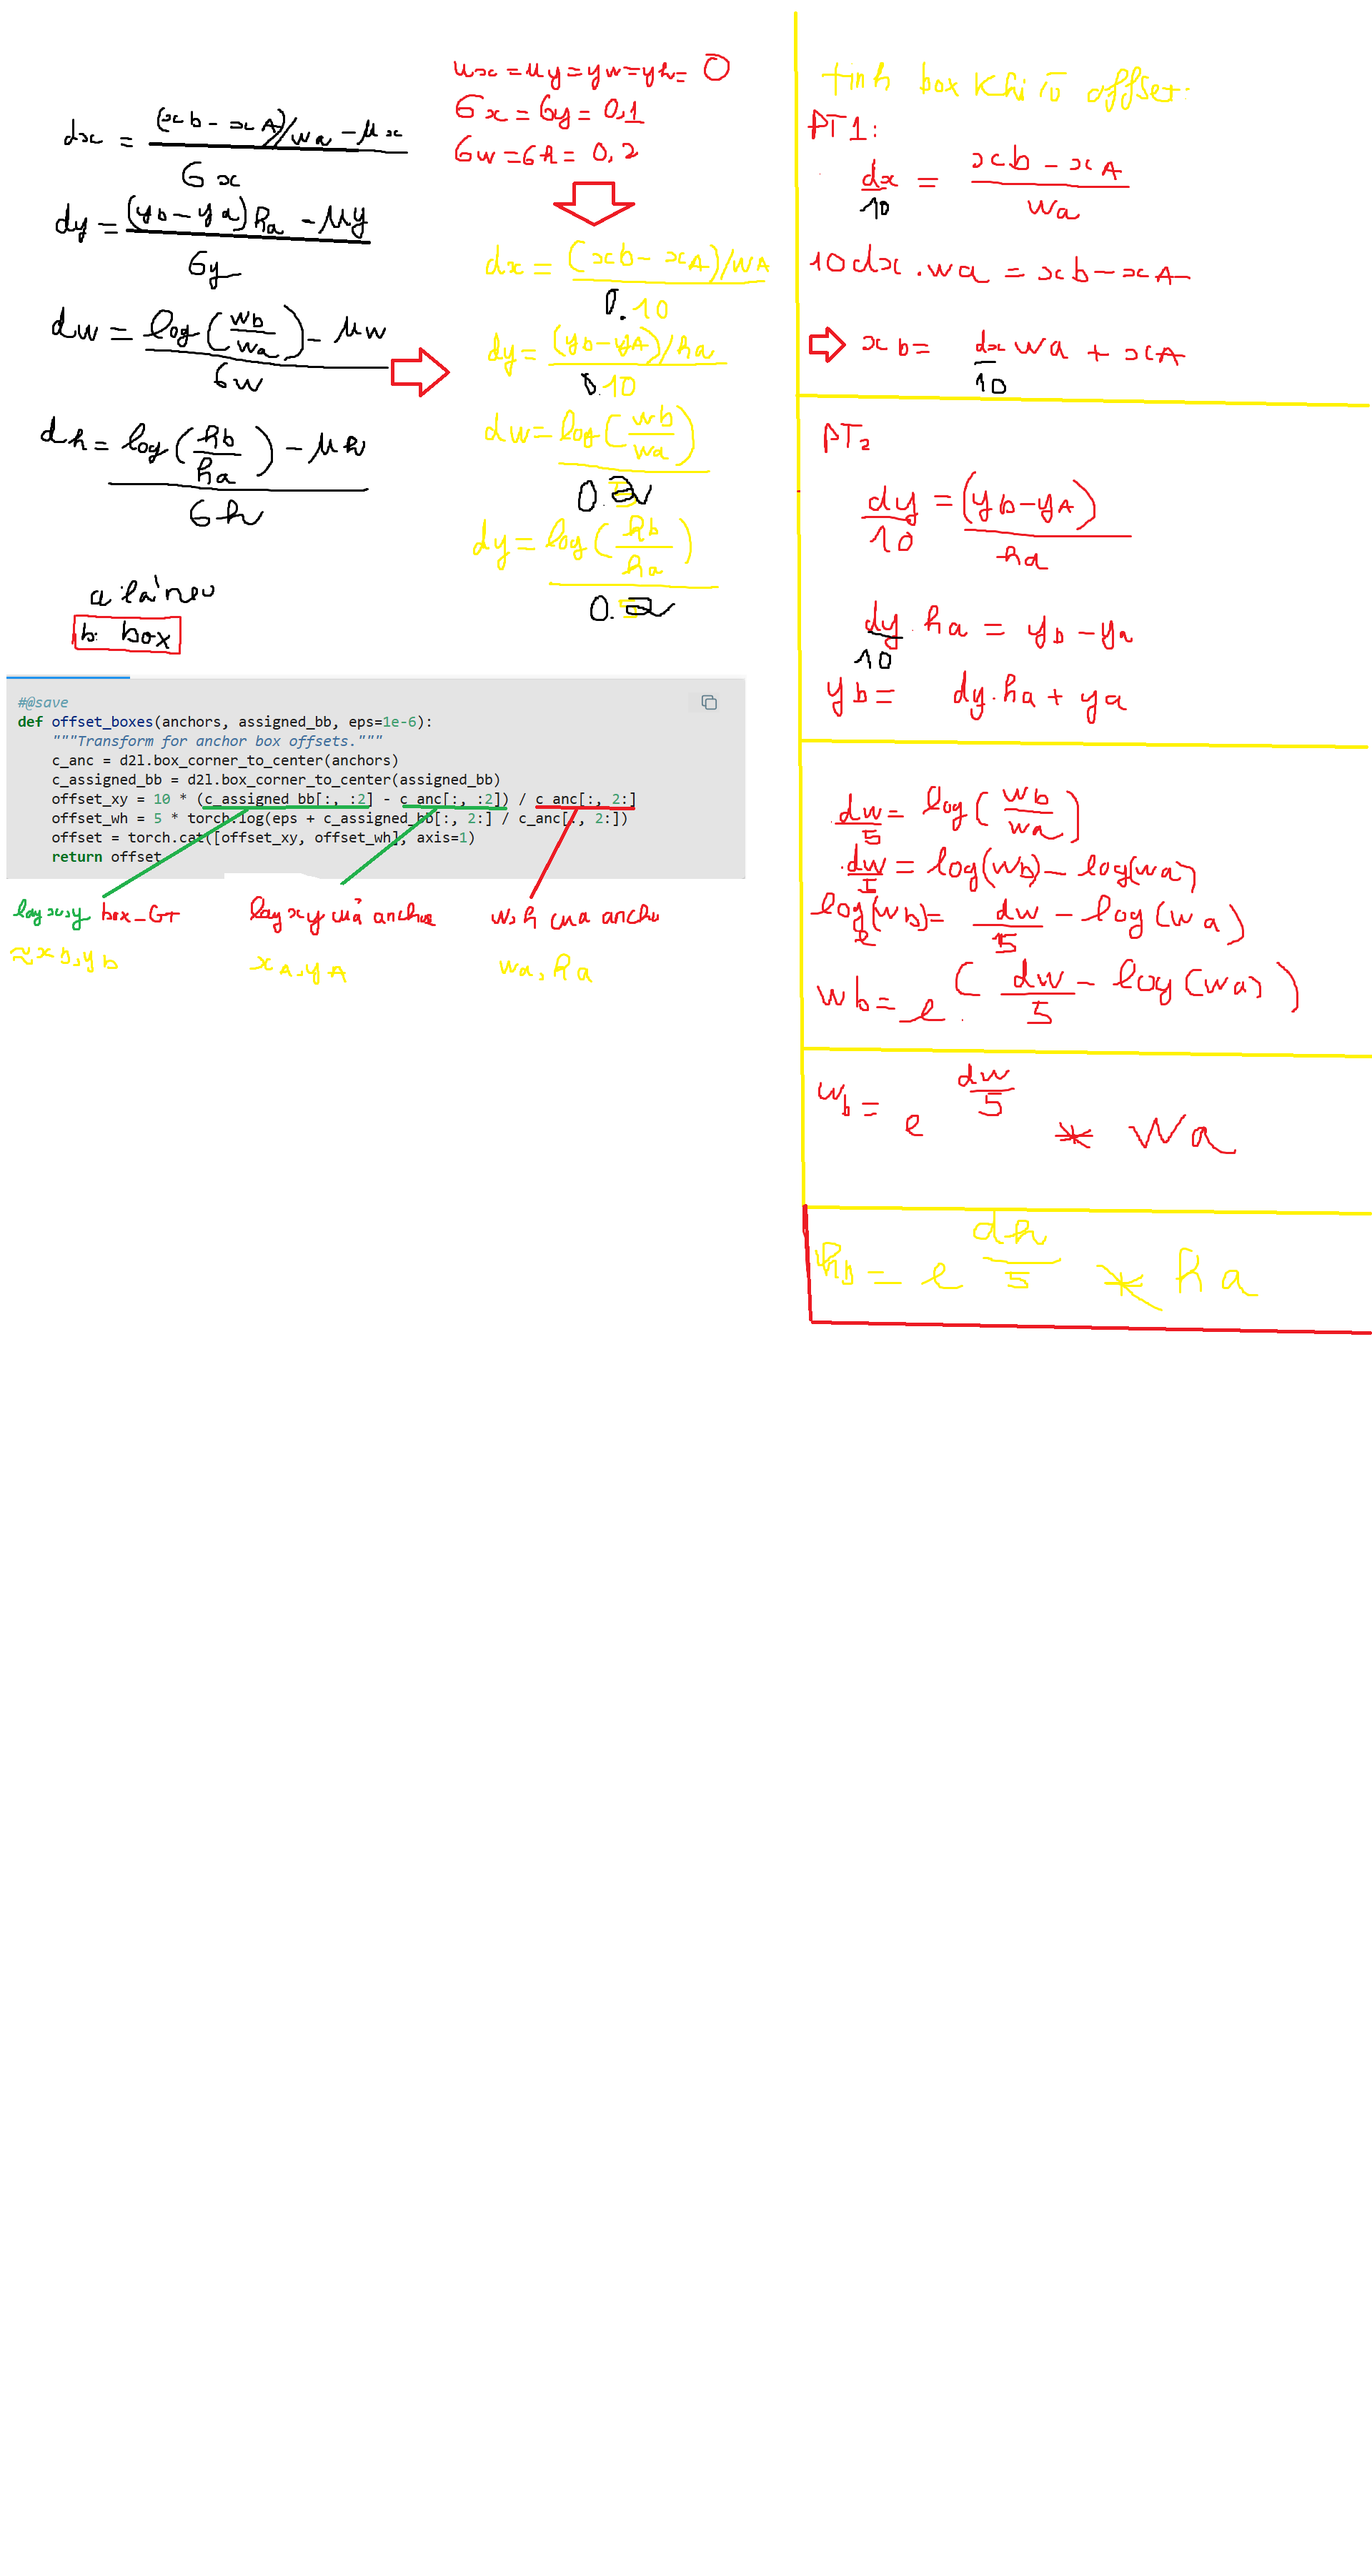 dx = (xb - xA)/wa - μx
6x
dy = (yb - ya) ha - μy
6y
dw = log(wb/wa) - μw
6w
dh = log(hb/ha) - μh
6h
b: box
ux = μy = yw = yh = 0
6x = 6y = 0,1
6w = 6h = 0,2
dx = (xb - xA)/wA
0.10
dy = (yb - yA)/ha
0.10
dw = log(wb/wa)
0.2
dy = log(hb/ha)
0.2
#@save
def offset_boxes(anchors, assigned_bb, eps=1e-6):
"""Transform for anchor box offsets."""
c_anc = d2l.box_corner_to_center(anchors)
c_assigned_bb = d2l.box_corner_to_center(assigned_bb)
offset_xy = 10 * (c_assigned_bb[:, :2] - c_anc[:, :2]) / c_anc[:, 2:]
offset_wh = 5 * torch.log(eps + c_assigned_bb[:, 2:] / c_anc[:, 2:])
offset = torch.cat([offset_xy, offset_wh], axis=1)
return offset
lay x,y box_GT
lay xy của ancho
w,h cua ancho
≈xb,yb
xA,yA
wa,ha
tinh box khi có offset.
PT1:
dx/10 = (xb - xA)/wa
10dx.wa = xb - xA
⇒ xb = dx/10 wa + xA
PT2
dy/10 = (yb - yA)/ha
dy/10 . ha = yb - ya
yb = dy.ha + ya
dw/5 = log(wb/wa)
dw/5 = log(wb) - log(wa)
loge(wb) = dw/5 - log(wa)
wb = e.(dw/5 - log(wa))
wb = e dw/5 * wa
hb = e dh/5 * ha